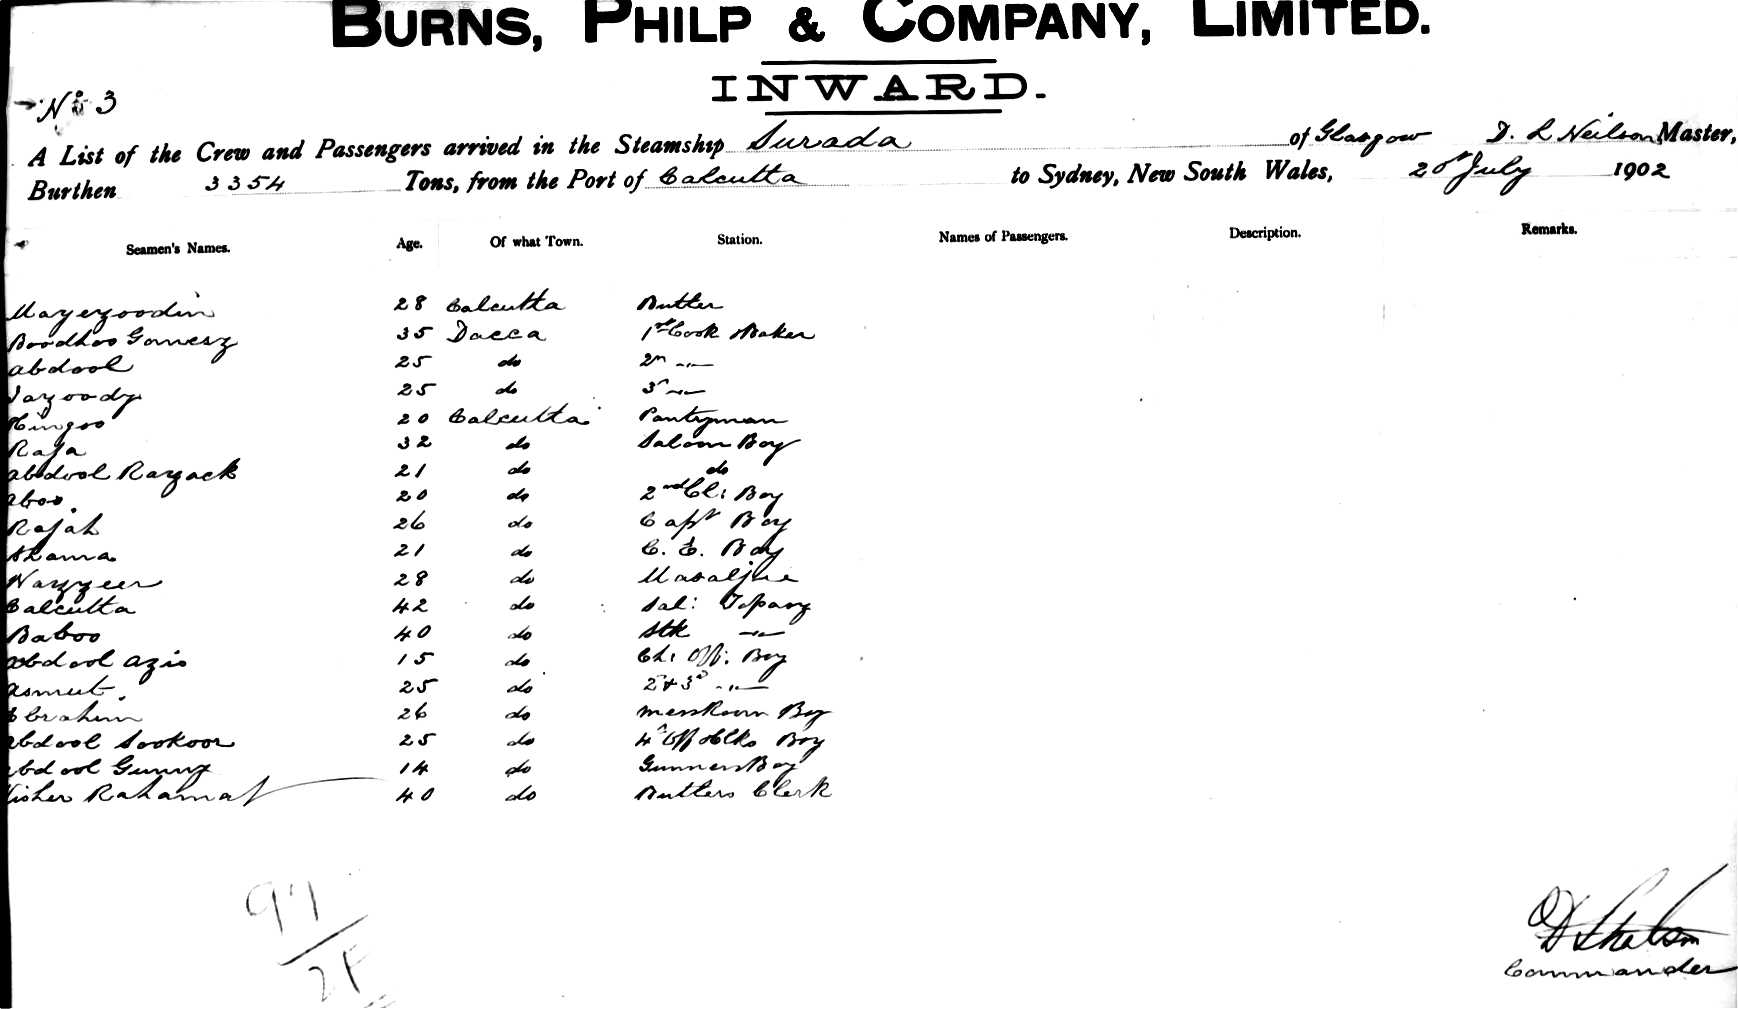 BURNS, PHILP & COMPANY, LIMITED.
INWARD.
No 3
A List of the Crew and Passengers arrived in the Steamship Surada of Glasgow D. L Neilson Master,
Burthen 3354 Tons, from the Port of Calcutta to Sydney, New South Wales, 20th July 1902
Seamen's Names. Age. Of what Town. Station. Names of Passengers. Description. Remarks.
Mayezoodin 28 Calcutta Butler
Boodhoo Gomesz 35 Dacca 1st Cook Baker
abdool 25 do 2n -"-
25 do 3r -"-
20 Calcutta Pantryman
Raja 32 do Saloon Boy
abdool Razack 21 do do
aboo. 20 do 2nd Cl: Boy
Rajah 26 do Capt Boy
Shama 21 do C. E. Boy
Nazzeer 28 do
Calcutta 42 do Sal: Topany
Baboo 40 do Stk -"-
abdool azis 15 do Ch: Off. Boy
asmut. 25 do 2nd & 3rd -"-
Ebrahim 26 do Messroom Boy
abdool Sookoor 25 do 4th Off & Clks Boy
abdool Gunny 14 do Gunners Boy
Rahamat 40 do Butlers Clerk
97
Commander